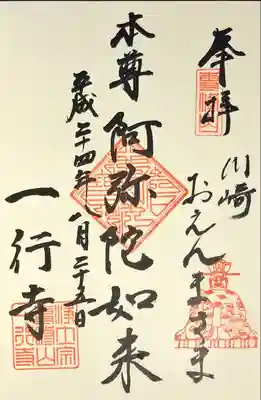 奉拝
川崎
おえんまさま
本尊 阿弥陀如来
平成二十四年八月二十五日
一行寺